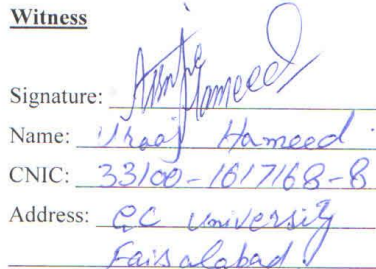 Witness
Signature: Hameed
Name: Hameed
CNIC: 33100-1617168-8
Address: GC University
Faisalabad.